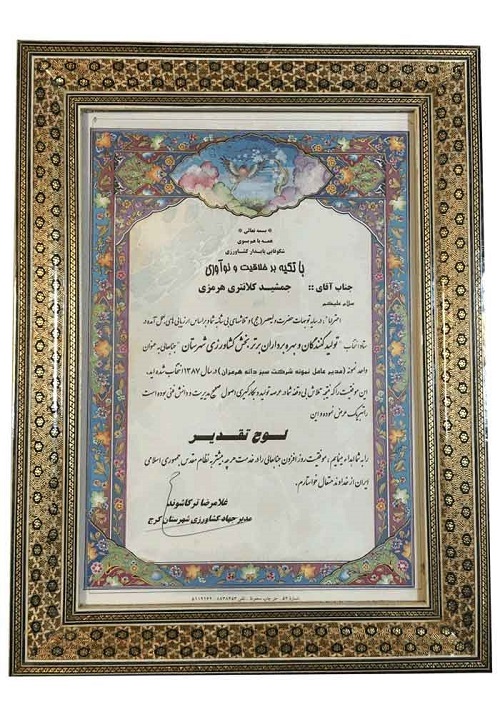 * بسمه تعالی *
همه با هم بسوی
شکوفایی پایدار کشاورزی
با تکیه بر خلاقیت و نوآوری
جناب آقای :: جمشید کلانتری هرمزی
سلام علیکم
احتراما، در سایه توجهات حضرت ولیعصر (عج) و تلاشهای بی شائبه شما و بر اساس ارزیابی های بعمل آمده در
ستاد انتخاب " تولید کنندگان و بهره برداران برتر بخش کشاورزی شهرستان " جنابعالی به عنوان
واحد نمونه (مدیر عامل نمونه شرکت سبز دانه هرمزان) در سال ۱۳۸۷ انتخاب شده اید.
این موفقیت را که نتیجه تلاش بی وقفه شما در عرصه تولید و بکارگیری اصول صحیح مدیریت و دانش فنی بوده است
را تبریک عرض نموده و این
لوح تقدیر
را به شما اهداء مینمایم. موفقیت روز افزون جنابعالی را در خدمت هرچه بیشتر به نظام مقدس جمهوری اسلامی
ایران از خداوند متعال خواستارم.
غلامرضا ترکاشوند
مدیر جهاد کشاورزی شهرستان کرج
شماره ۵۴ - حق چاپ محفوظ - تلفن